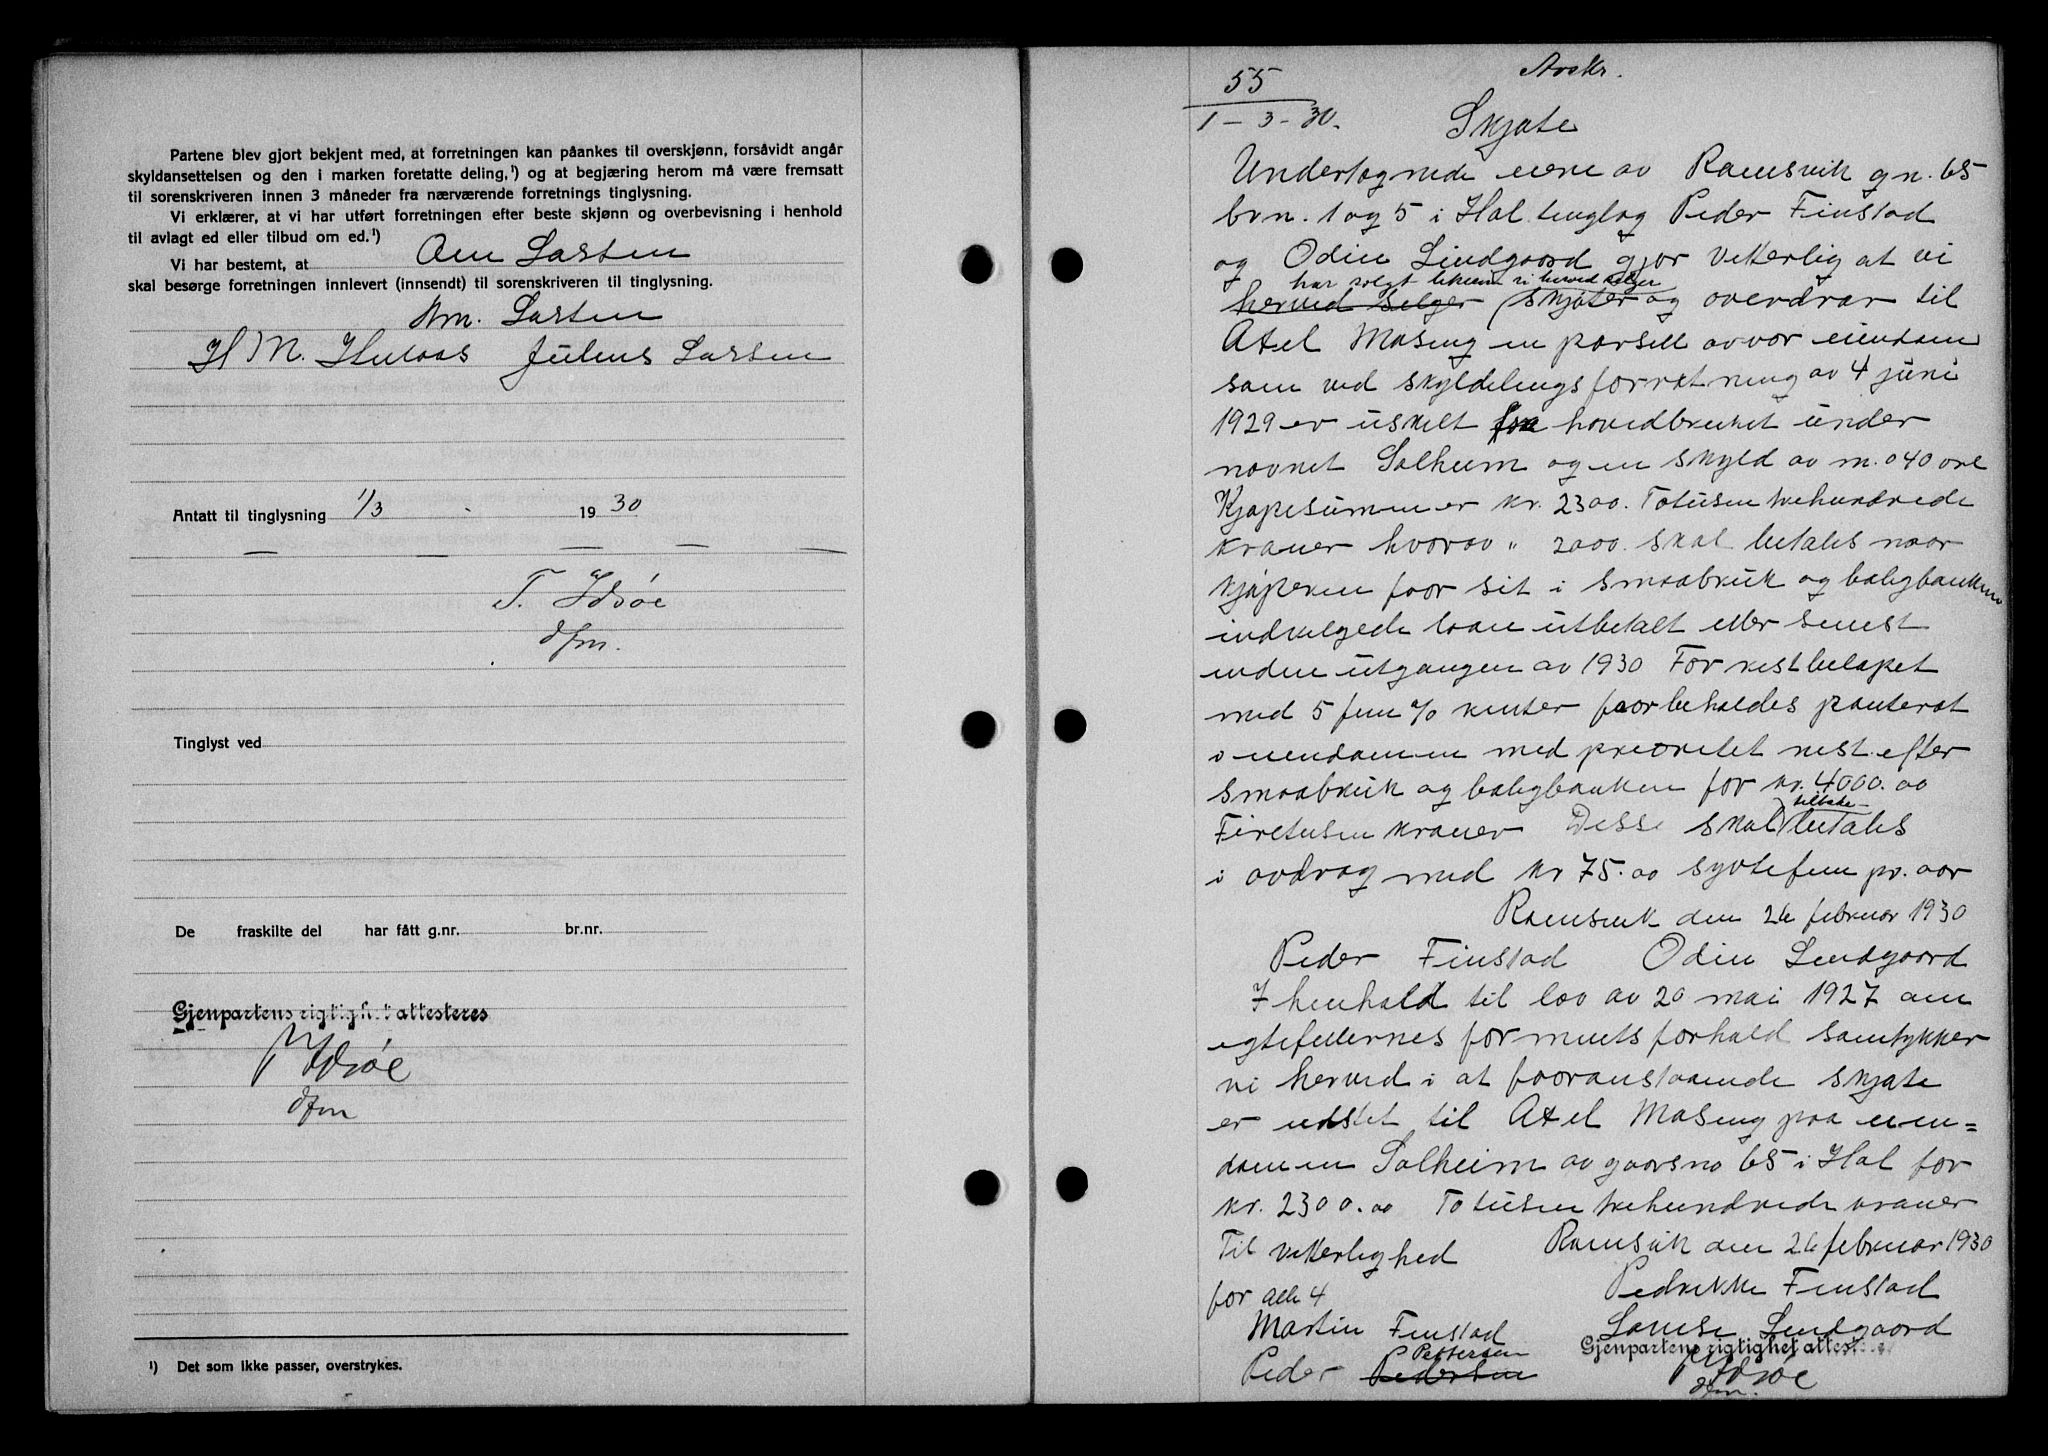 Partene blev gjort bekjent med, at forretningen kan påankes til overskjønn, forsåvidt angår
skyldansettelsen og den i marken foretatte deling,¹) og at begjæring herom må være fremsatt
til sorenskriveren innen 3 måneder fra nærværende forretnings tinglysning.
Vi erklærer, at vi har utført forretningen efter beste skjønn og overbevisning i henhold
til avlagt ed eller tilbud om ed.¹)
Vi har bestemt, at Om Larsen
skal besørge forretningen innlevert (innsendt) til sorenskriveren til tinglysning.
Om. Larsen
H M. Hulaas Julius Larsen
Antatt til tinglysning 1/3 1930
T. Idsøe
dfm.
Tinglyst ved
De fraskilte del har fått g.nr. br.nr.
Gjenpartens rigtighet attesteres
T Idsøe
dfm
¹) Det som ikke passer, overstrykes.
Avskr.
55
1 - 3 - 30.
Skjøte
Undertegnede eiere av Ramsvik gn. 65
brn. 1 og 5 i Hol tinglag Peder Finstad
og Odin Lindgaard gjør vitterlig at vi
har solgt likesom vi herved selger
herved selger skjøter og overdrar til
Axel Masing en parsell av vor eiendom
som ved skylddelingsforretning av 4 juni
1929 er uskelt fra hovedbruket under
navnet Solheim og en skyld av m. 040 øre
Kjøpesummen er kr. 2300. Totusen trehundrede
kroner hvorav " 2000. skal betales naar
kjøperen faar sit i smaabruk og boligbanken
indvilgede laan utbetalt eller senest
inden utgangen av 1930 For restbeløpet
med 5 fem % renter faarbeholdes panteret
i eiendommen med prioritet nest efter
smaabruk og boligbanken for kr. 4000.00
tilbake-
Firetusen kroner Disse skal betales
i avdrag med kr 75.00 syvtifem pr. aar
Ramsvik den 26 februar 1930
Peder Finstad Odin Lindgaard
I henhold til lov av 20 mai 1927 om
egtefellernes formuesforhold samtykker
vi herved i at foranstaaende skjøte
er udstet til Axel Masing paa eien=
dommen Solheim av gaarsno 65 i Hol for
kr. 2300.00 Totusen trehundrede kroner
Til vitterlighed Ramsvik den 26 februar 1930
for alle 4 Pedrikke Finstad
Martin Finstad Lovise Lindgaard
Pettersen
Peder Pedersen
Gjenpartens rigtighet attesteres
T Idsøe
dfm.